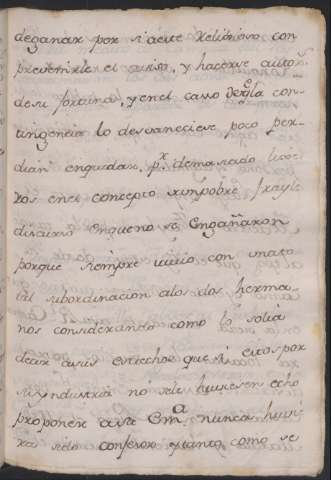 deganar por si a este Religioso con
prevenirle el aviso, y hacerse autor
de su fortuna, y en el caso de q̃ la con-
tingencia lo desvaneciese poco per-
dian en quedar, pr. demasiado lixe-
ros en el concepto de un pobre frayle
discurso en que no se engañaron
porque siempre vivio con una to-
tal subordinacion a los dos herma-
nos considerando como lo solia
decir a sus estrechos que si estos por
su yndustria no se le huviesen echo
proponer a su Em.a nunca huvie-
ra sido confesor y tanto como se